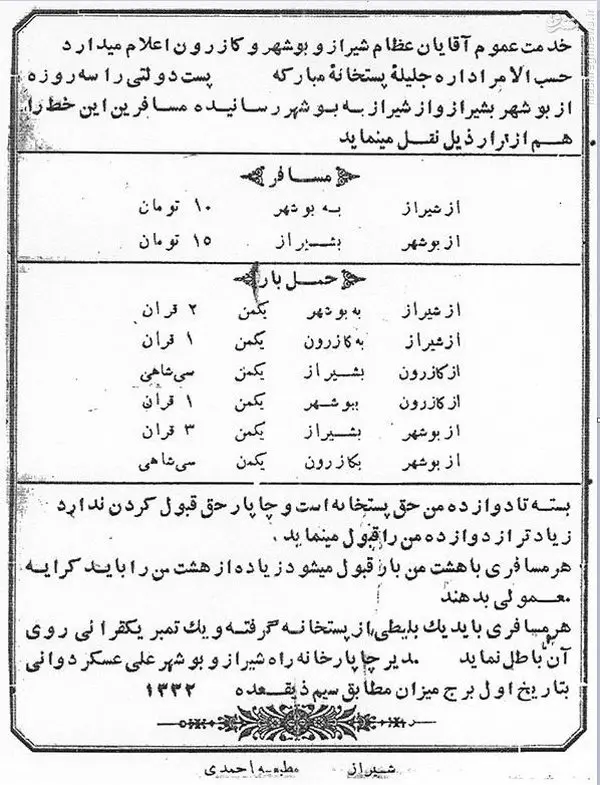 خدمت عموم آقایان عظام شیراز و بوشهر و کازرون اعلام میدارد
حسب الامر اداره جلیلهٔ پستخانهٔ مبارکه پست دولتی را سه روزه
از بوشهر بشیراز و از شیراز به بوشهر رسانیده مسافرین این خط را
هم از قرار ذیل نقل مینماید
مسافر
از شیراز به بوشهر ۱۰ تومان
از بوشهر بشیراز ۱۵ تومان
حمل بار
از شیراز به بوشهر یکمن ۲ قران
از شیراز به کازرون یکمن ۱ قران
از کازرون بشیراز یکمن سی شاهی
از کازرون ببوشهر یکمن ۱ قران
از بوشهر بشیراز یکمن ۳ قران
از بوشهر بکازرون یکمن سی شاهی
بسته تا دوازده من حق پستخانه است و چاپار حق قبول کردن ندارد
زیادتر از دوازده من را قبول مینماید.
هر مسافری با هشت من بار قبول میشود زیاده از هشت من را باید کرایه
معمولی بدهند
هر مسافری باید یك بلیطی از پستخانه گرفته و یك تمبر یکقرانی روی
آن باطل نماید مدیر چاپارخانه راه شیراز و بوشهر علی عسکر دوانی
بتاریخ اول برج میزان مطابق سیم ذیقعده ۱۳۳۲
شیراز مطبعه احمدی